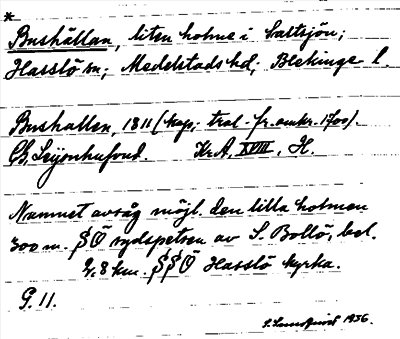 *
Bushällan, liten holme i Saltsjön;
Hasslö sn; Medelstads hd; Blekinge l.
Bushallen, 1811 (kop. trol. fr. omkr. 1700).
Ch. Leijonhufvud. KrA, XVIII, H.
Namnet avsåg möjl. den lilla holmen
300 m. SÖ sydspetsen av S. Bollö, bel.
2,8 km. SSÖ Hasslö kyrka.
G. 11.
S. Lundquist 1936.